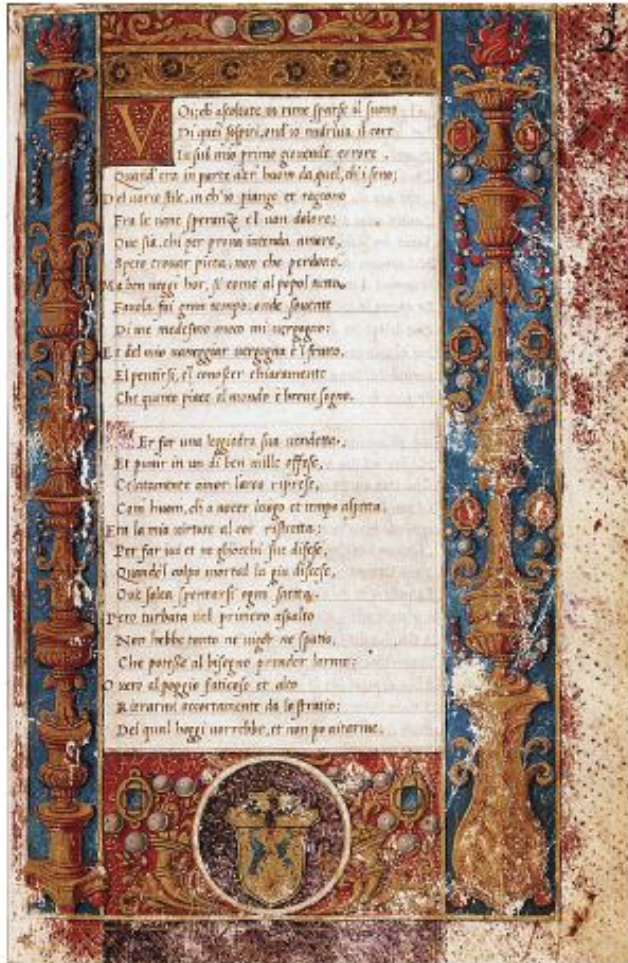 2
VOi; ch ascoltate in rime sparse il suono
Di quei sospiri, ond'io nudriva il core
In sul mio primo giovenile errore,
Quand'era in parte altr' huom da quel, ch'i sono;
Del vario stile, in ch'io piango et ragiono
Fra le vane speranze e'l van dolore;
Ove sia, chi per prova intenda amore,
Spero trovar pieta, non che perdono.
Ma ben veggi hor, si come al popol tutto
Favola fui gran tempo: onde sovente
Di me medesmo meco mi vergogno:
Et del mio vaneggiar vergogna e'l frutto,
E'l pentirsi, e'l conoscer chiaramente
Che quanto piace al mondo è breve sogno.
Er far una leggiadra sua vendetta,
Et punir in un di ben mille offese,
Celatamente amor l'arco riprese,
Com' huom, ch' a nocer luogo et tempo aspetta.
Era la mia virtute al cor ristretta;
Per far ivi et ne gliocchi sue difese,
Quando'l colpo mortal la giu discese,
Ove solea spuntarsi ogni saetta.
Pero turbata nel primiero assalto
Non hebbe tanto ne vigor ne spatio,
Che potesse al bisogno prender l'arme;
O vero al poggio faticoso et alto
Ritrarmi accortamente da lo stratio;
Del qual hoggi vorrebbe, et non po aitarme.